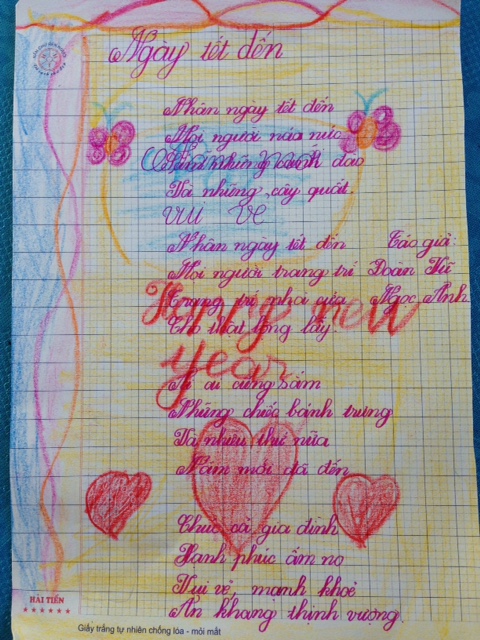 Ngày tết đến
Nhân ngày tết đến
Mọi người náo nức
cành đào
Và những cây quất.
VUI VẺ
Nhân ngày tết đến
Tác giả:
Mọi người trang trí
Đoàn Vũ
Trang trí nhà cửa
Ngọc Ánh
Cho thật lộng lẫy!
Happy new
year
Ai ai cũng sắm
Những chiếc bánh trưng
Và nhiều thứ nữa
Năm mới đã đến
Chúc cả gia đình
Hạnh phúc ấm no
Vui vẻ, mạnh khoẻ
An khang thịnh vượng.
HẢI TIẾN
Giấy trắng tự nhiên chống lóa - mỏi mắt